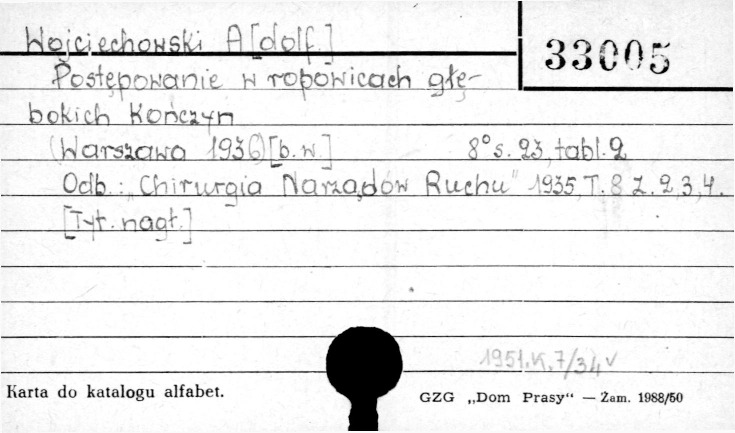 Wojciechowski A[dolf.]
33005
Postępowanie w ropowicach głę-
bokich Kończyn
(Warszawa 1936)[b.w.] 8° s. 23, tabl. 2
Odb.: „Chirurgia Narządów Ruchu" 1935, T. 8 Z. 2, 3, 4.
[Tyt. nagł.]
1951.K.7/34 v
Karta do katalogu alfabet.
GZG „Dom Prasy“ — Zam. 1988/50